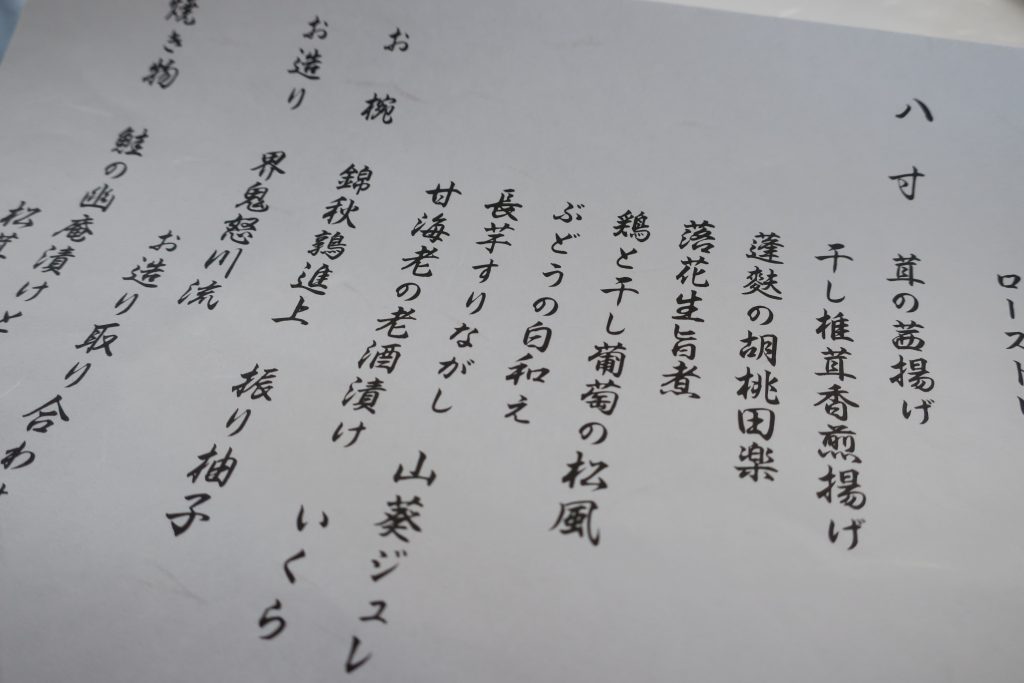 ロースト
八寸 茸の茜揚げ
干し椎茸香煎揚げ
蓬麩の胡桃田楽
落花生旨煮
鶏と干し葡萄の松風
ぶどうの白和え
長芋すりながし 山葵ジュレ
甘海老の老酒漬け いくら
お椀 錦秋鶉進上 振り柚子
お造り 界鬼怒川流
お造り取り合わ
焼き物 鮭の幽庵漬けと
松茸